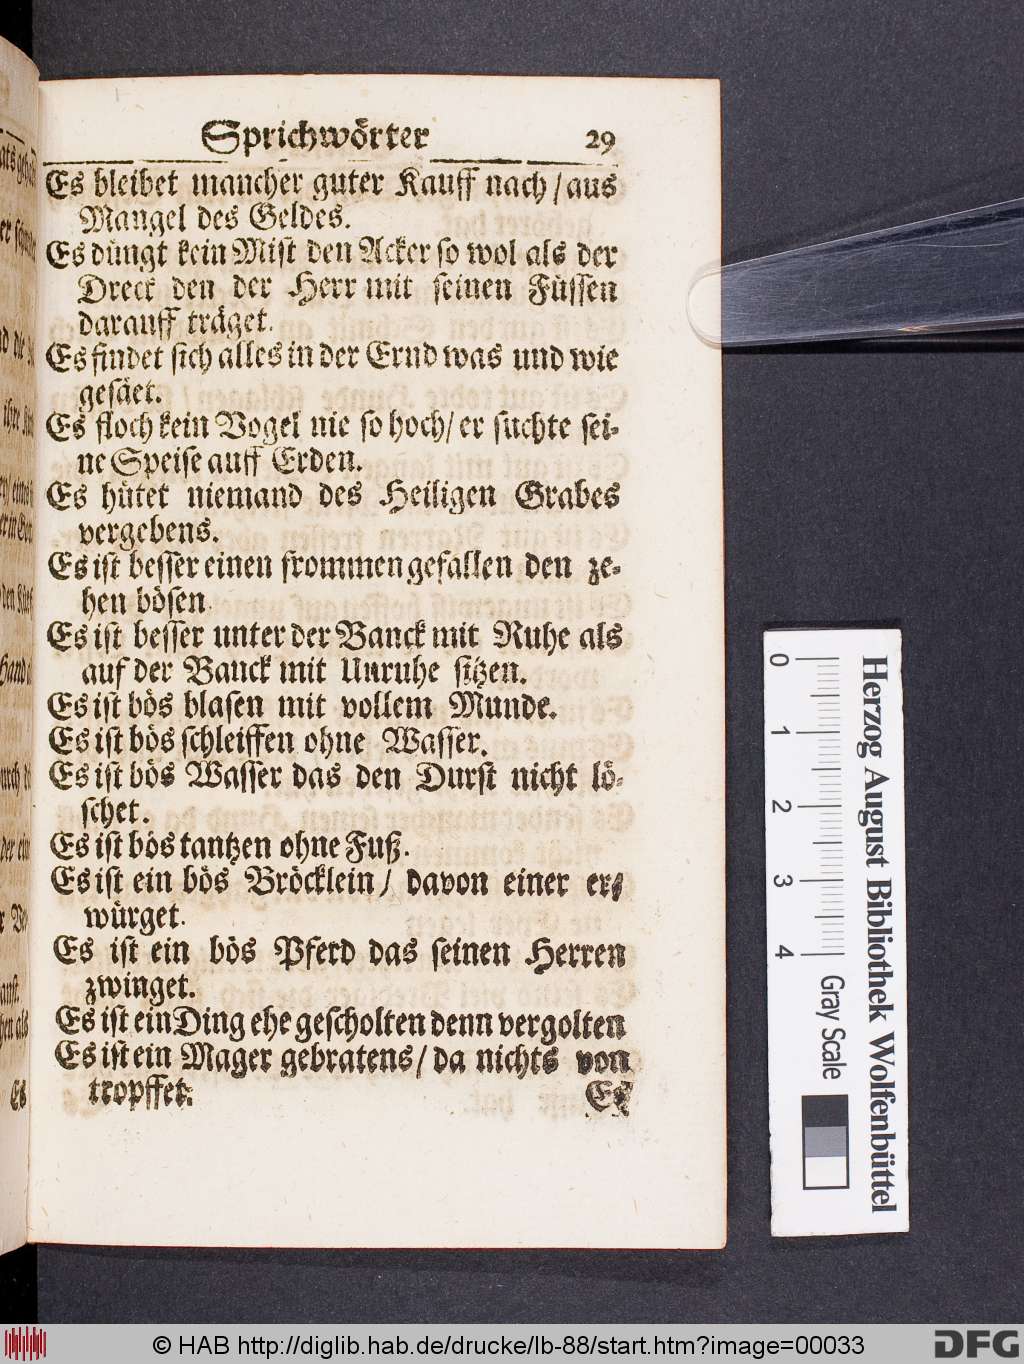 Sprichwörter 29
Es bleibet mancher guter Kauff nach / aus
Mangel des Geldes.
Es düngt kein Mist den Acker so wol als der
Dreck den der Herr mit seinen Füssen
darauff träget.
Es findet sich alles in der Ernd was und wie
gesäet.
Es floch kein Vogel nie so hoch / er suchte sei-
ne Speise auff Erden.
Es hütet niemand des Heiligen Grabes
vergebens.
Es ist besser einen frommen gefallen den ze-
hen bösen.
Es ist besser unter der Banck mit Ruhe als
auf der Banck mit Unruhe sitzen.
Es ist bös blasen mit vollem Munde.
Es ist bös schleiffen ohne Wasser.
Es ist bös Wasser das den Durst nicht lö-
schet.
Es ist bös tantzen ohne Fuß.
Es ist ein bös Bröcklein / davon einer er-
würget.
Es ist ein bös Pferd das seinen Herren
zwinget.
Es ist ein Ding ehe gescholten denn vergolten
Es ist ein Mager gebratens / da nichts von
tropffet.
Es
Es
0 1 2 3 4 Gray Scale
Herzog August Bibliothek Wolfenbüttel
© HAB http://diglib.hab.de/drucke/lb-88/start.htm?image=00033
DFG